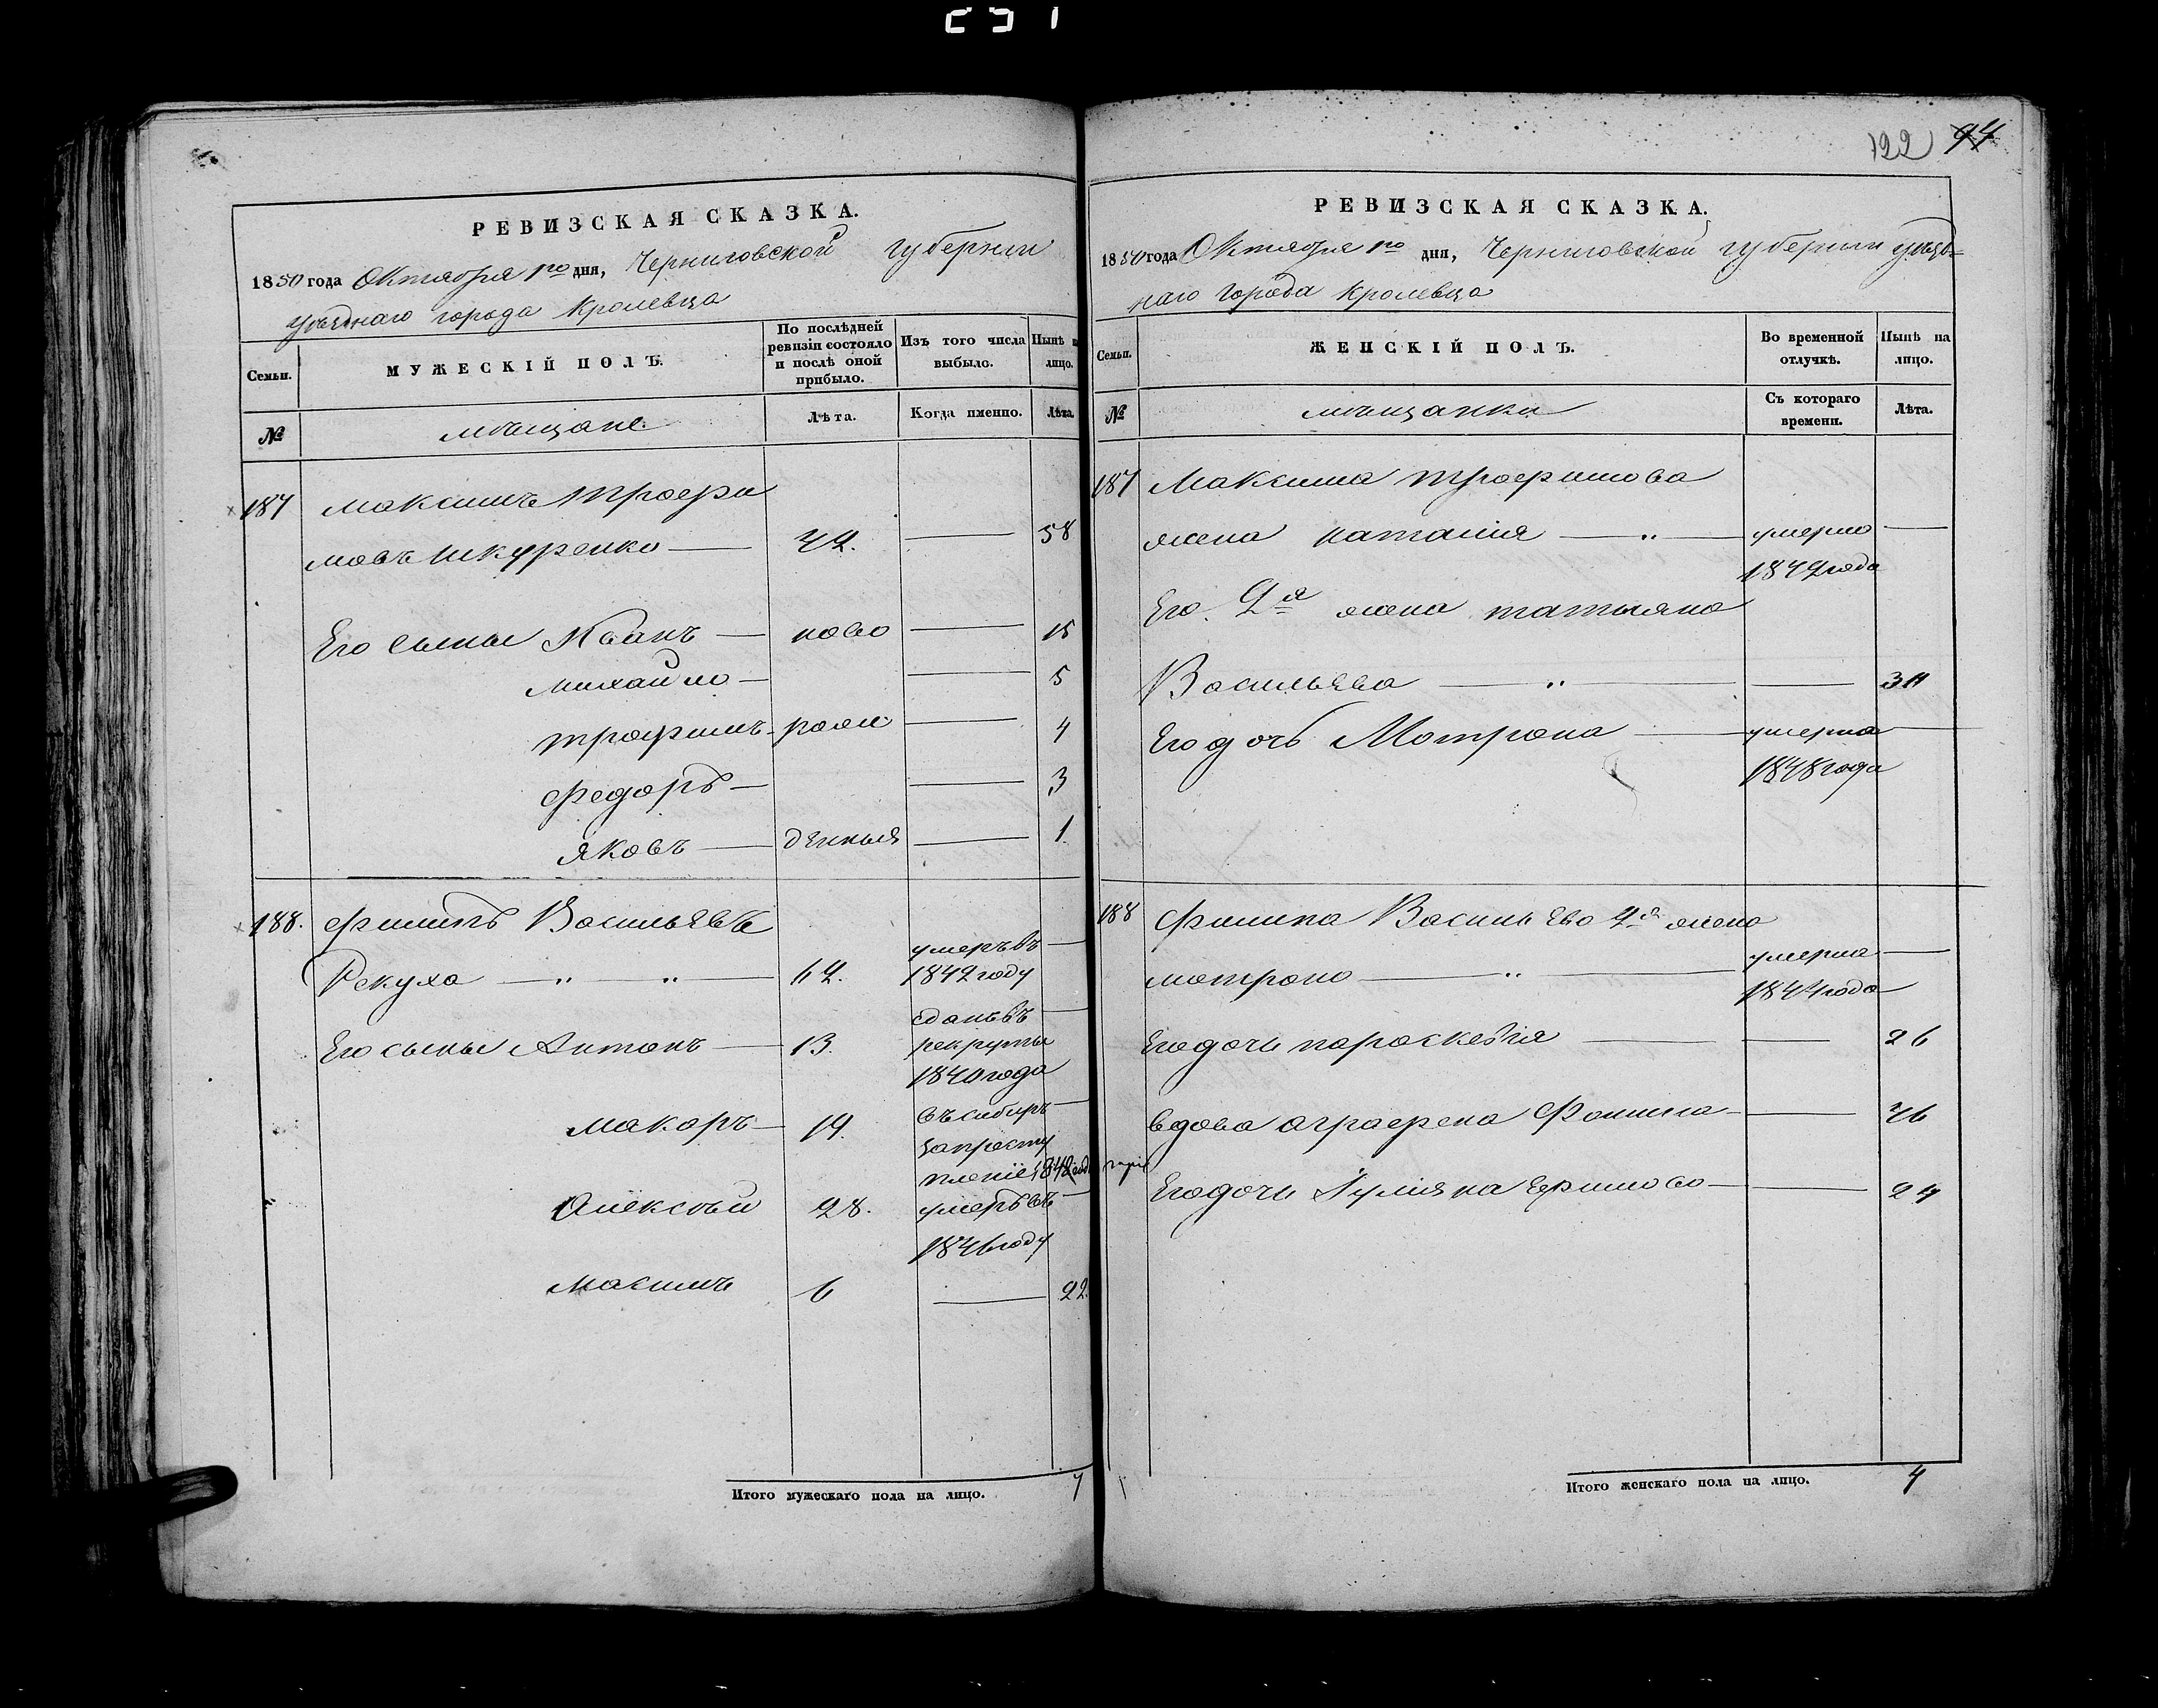 РЕВИЗСКАЯ СКАЗКА.
1850 года Октября 1го дня, Черниговской губернии
уѣзднаго города Кролевца
Семьи.
МУЖЕСКІЙ ПОЛЪ.
По послѣдней ревизіи состояло и послѣ оной прибыло.
Изъ того числа выбыло.
Нынѣ на лицо.
№
мѣщане
Лѣта.
Когда именно.
Лѣта.
187 Максимъ Трофи
мовъ Шкуренко 42. 58
Его сыны Иванъ ново 15
Михайло 5
Трофимъ рож 4
Федоръ 3
Яковъ денныя 1
188. Филипъ Васильевъ
Рекуха 62. умеръ въ 1842 году
Его сыны Антонъ 13. сданъ въ рекруты 1840 года
Макаръ 19. въ сибиръ за престу пленіе 1842 года
Алексѣй 28. умеръ въ 1846 году
Максимъ 6 22.
Итого мужескаго пола на лицо. 7
122 94
РЕВИЗСКАЯ СКАЗКА.
1850 года Октября 1го дня, Черниговской губернии уѣзд=
наго города Кролевца
Семьи.
ЖЕНСКІЙ ПОЛЪ.
Во временной отлучкѣ.
Нынѣ на лицо.
№
мѣщанки
Съ котораго времени.
Лѣта.
187 Максима Трофимова
жена наталія умерла
1842 года
Его 2я жена татьяна
Васильева
Его дочь Мотрона умерла
1848 года
188 Филипа Васильева 2я жена
мотрона умерла
1844 года
Его дочь параскевія 26
вдова аграфена Фомина 46
Его дочь Іуліяна Ефимова 24
Итого женскаго пола на лицо. 4